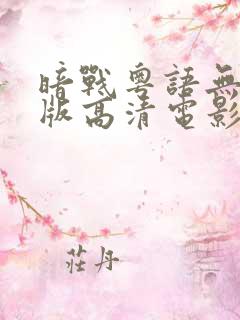 暗戰粵語無
版高清電影
莊丹